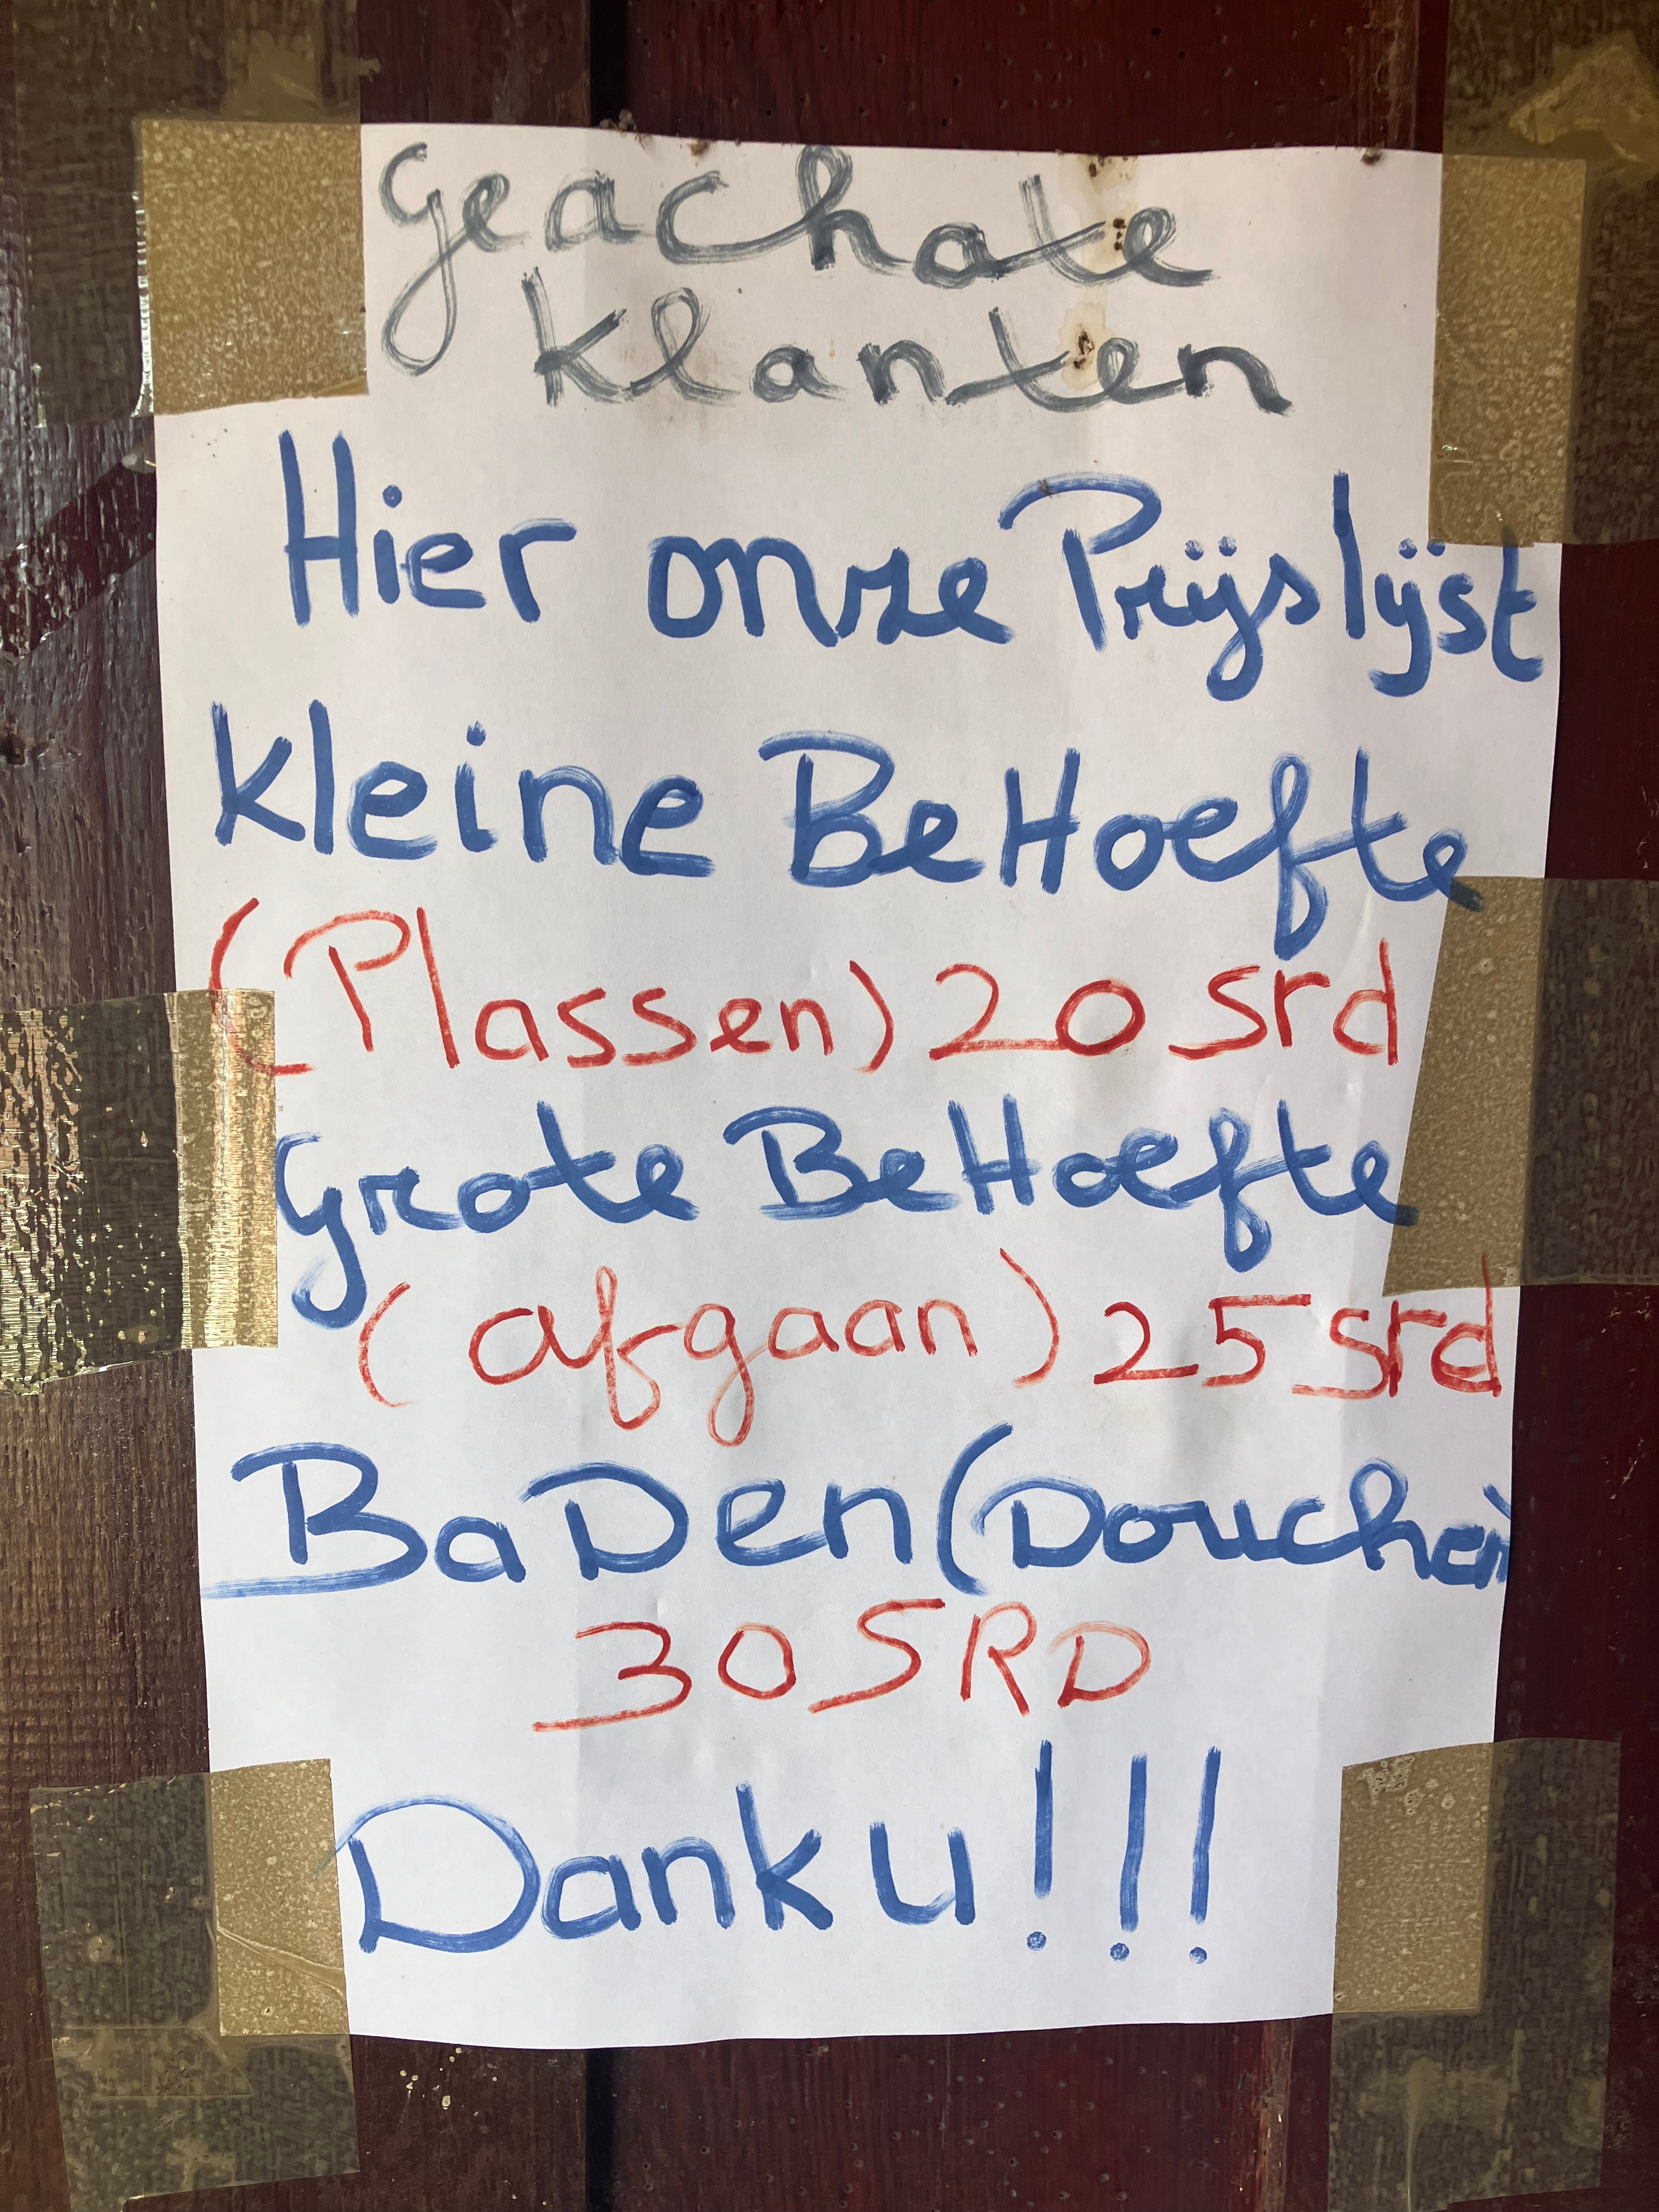 geachate
klanten
Hier onze Prijslijst
kleine BeHoefte
(Plassen) 20 srd
Grote BeHoefte
(afgaan) 25 srd
BaDen (Douchen)
30 SRD
Danku!!!